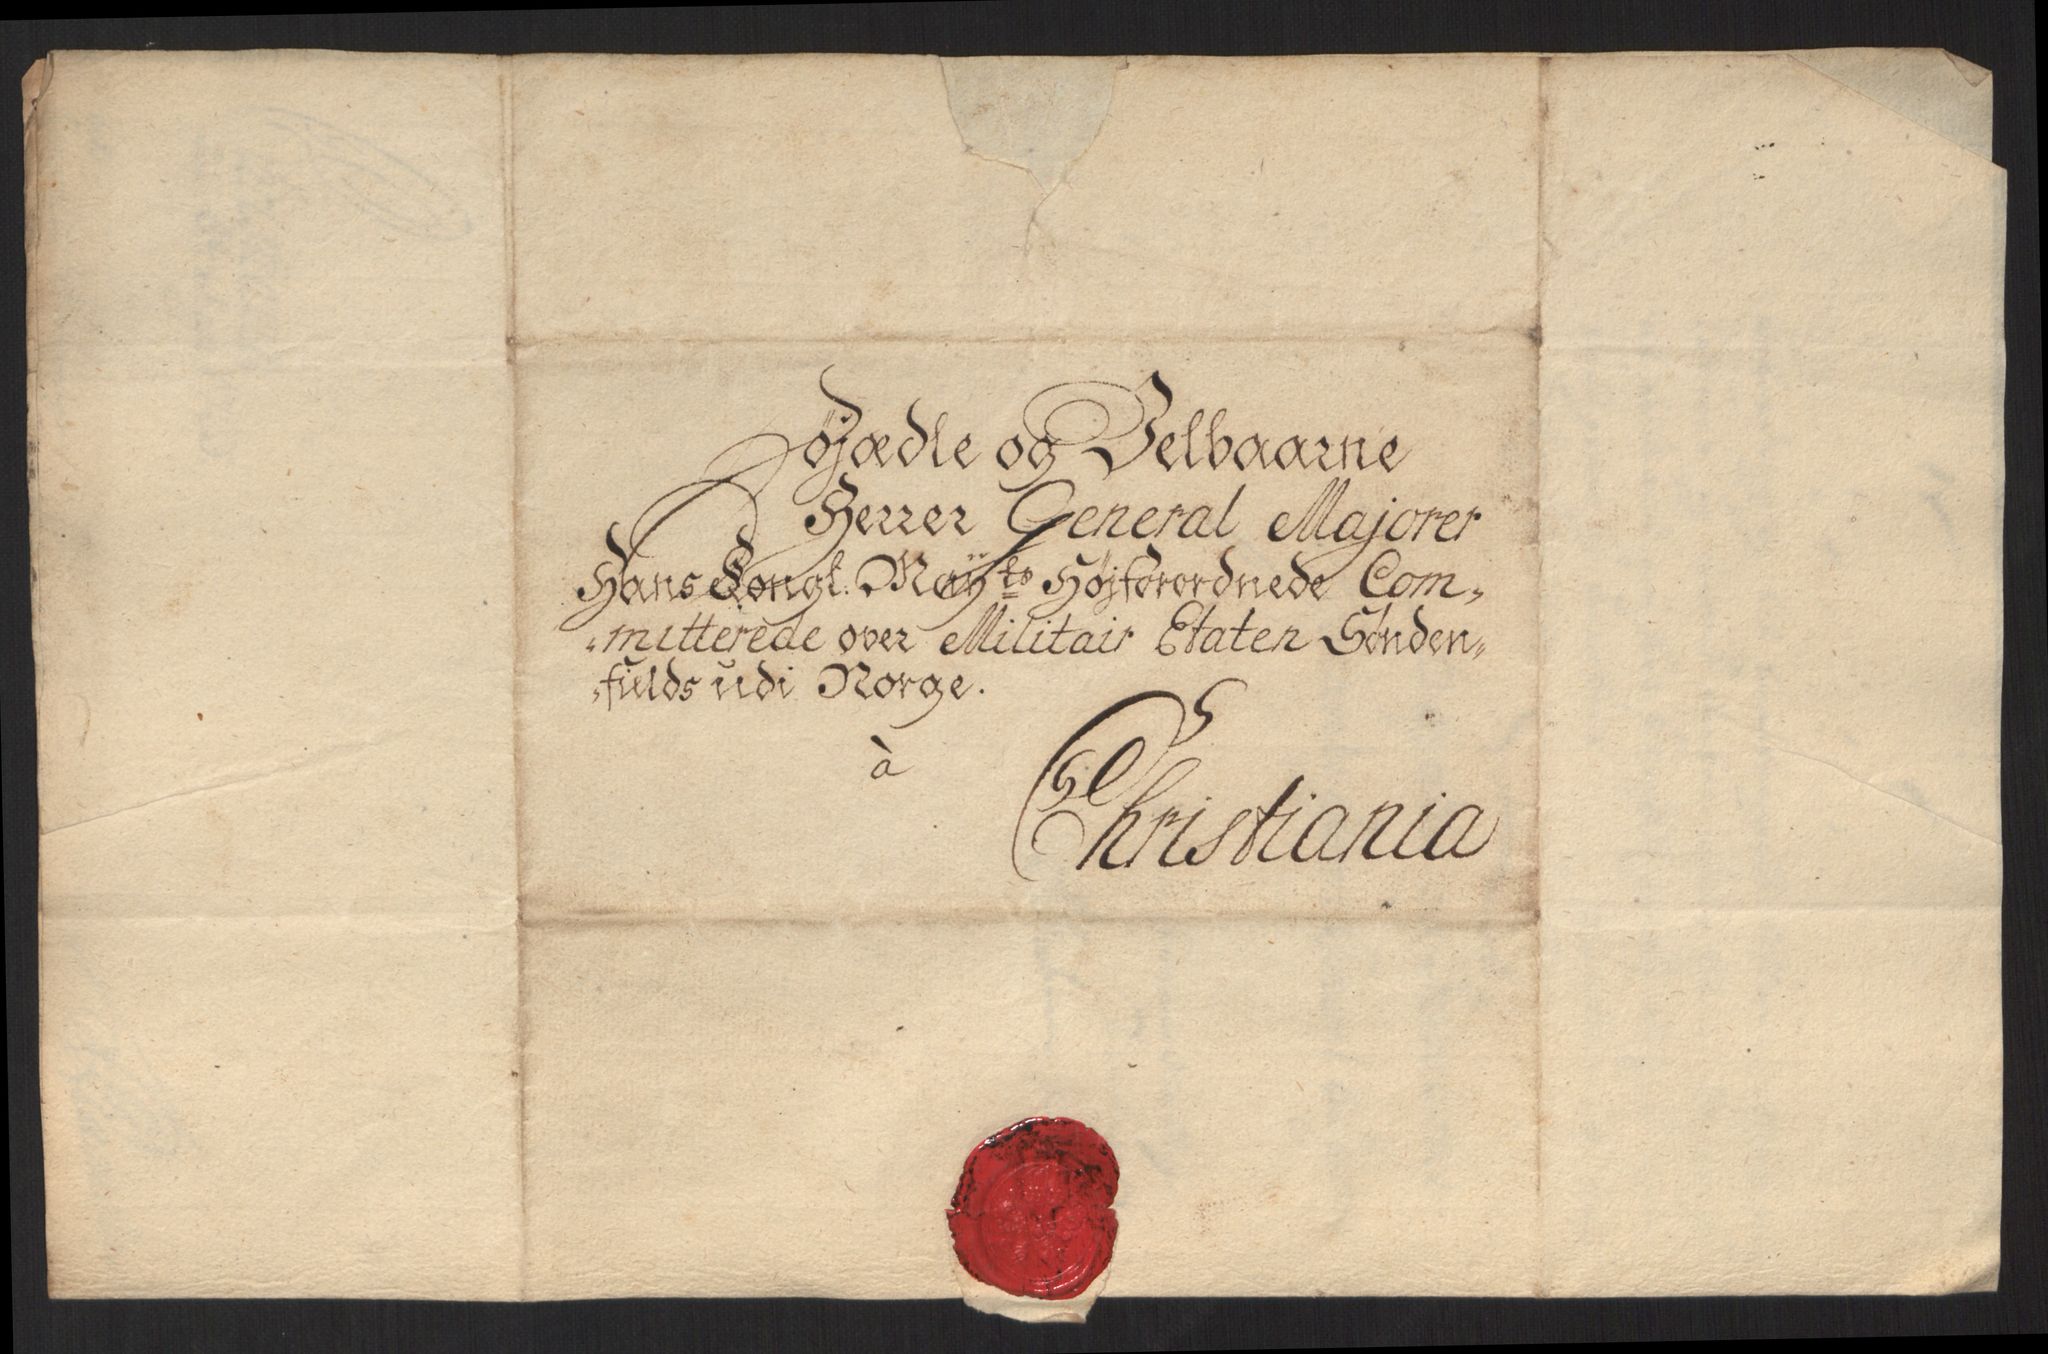 Højædle og Velbaarne
Herrer General Majorer
Hans Kongl. Mayts Højforordnede Com„
„mitterede over Militair Etaten Sönden„
„fields udi Norge.
à
Christiania